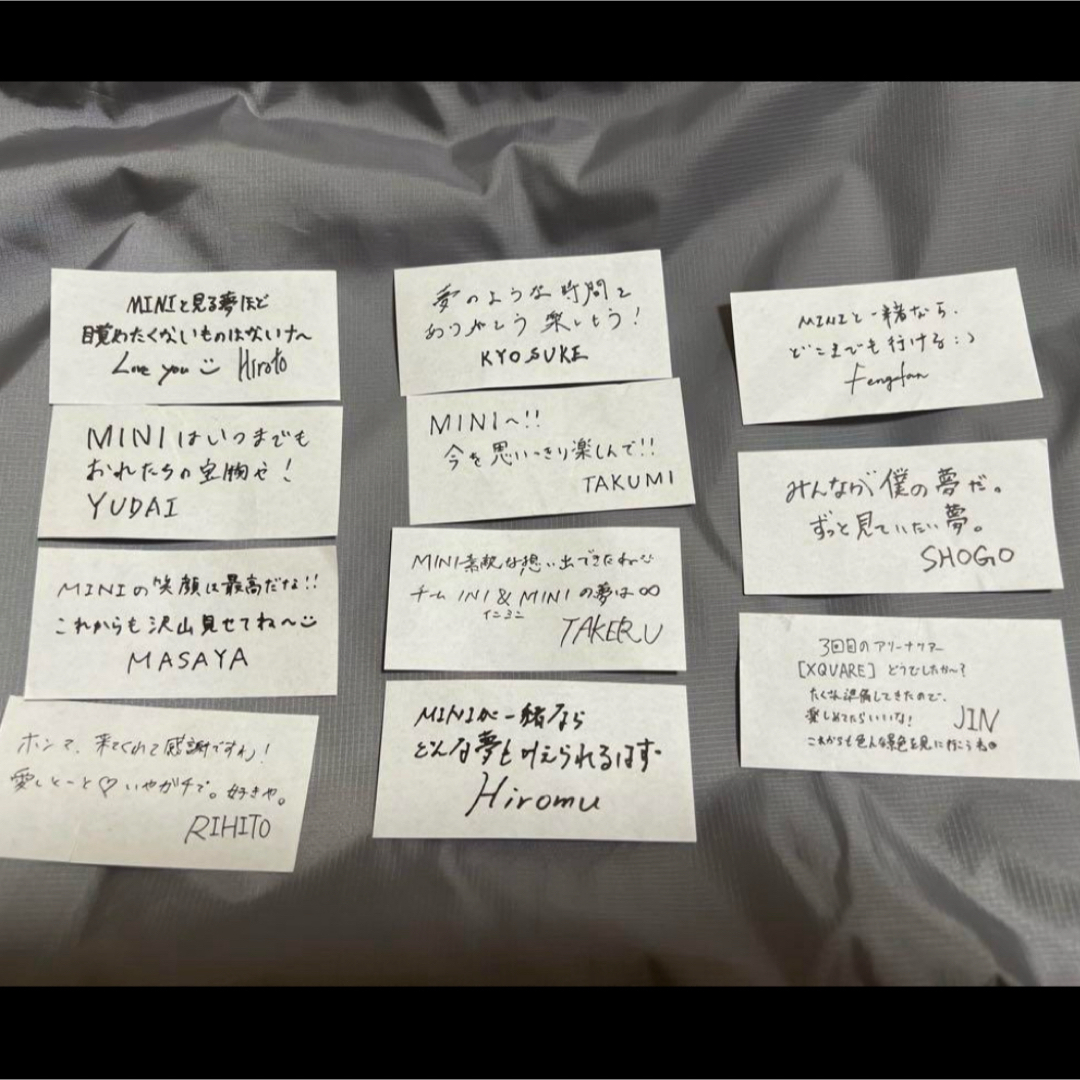 MINIと見る夢ほど
目覚めたくないものはないナ〜
Love you Hiroto
MINIはいつまでも
おれたちの宝物や!
YUDAI
MINIの笑顔は最高だな!!
これからも沢山見せてね〜
MASAYA
ホンマ、来てくれて感謝ですわ!
愛しとーと♡いやガチで。好きや。
RIHITO
夢のような時間を
ありがとう 楽しもう!
KYOSUKE
MINIへ!!
今を思いっきり楽しんで!!
TAKUMI
MINI素敵な想い出できたね
チーム INI & MINI の夢は∞
イニ ミニ
TAKERU
MINIが一緒なら
どんな夢も叶えられるはず
Hiromu
MINIと一緒なら、
どこまでも行ける:)
Fengfan
みんなが僕の夢だ。
ずっと見ていたい夢。
SHOGO
3回目のアリーナツアー
[XQUARE] どうでしたか〜?
たくさん準備してきたので、
楽しめてたらいいな!
JIN
これからも色んな景色を見に行こうね